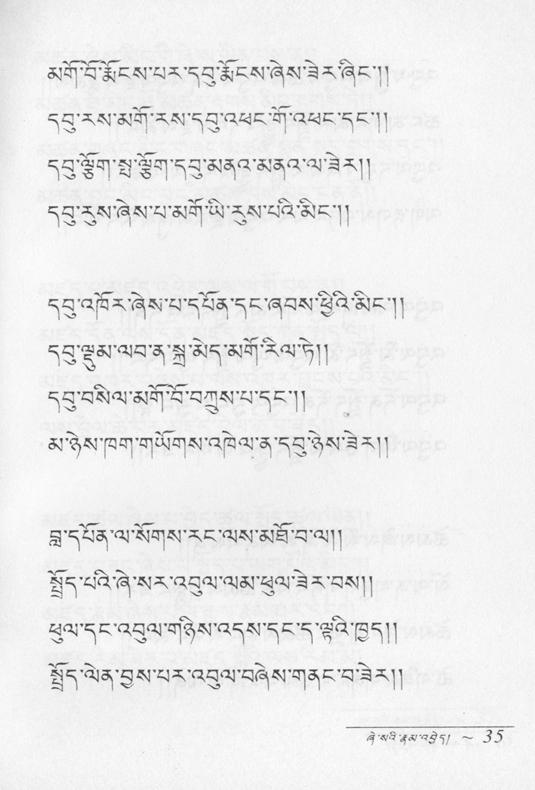 མགོ་བོ་རྨོངས་པར་དབུ་རྨོངས་ཞེས་ཟེར་ཞིང་།།
དབུ་རས་མགོ་རས་དབུ་འཕང་གོ་འཕང་དང་།།
དབུ་ལྕོག་སྤ་ལྕོག་དབུ་མནའ་མནའ་ལ་ཟེར།།
དབུ་རུས་ཞེས་པ་མགོ་ཡི་རུས་པའི་མིང་།།
དབུ་འཁོར་ཞེས་པ་དཔོན་དང་ཞབས་ཕྱིའི་མིང་།།
དབུ་ལྡུམ་ལབ་ན་སྐྲ་མེད་མགོ་རིལ་ཏེ།།
དབུ་བསིལ་མགོ་བོ་བཀྲུས་པ་དང་།།
མ་ཉེས་ཁག་གཡོགས་འཁེལ་ན་དབུ་ཉེས་ཟེར།།
བླ་དཔོན་ལ་སོགས་རང་ལས་མཐོ་བ་ལ།།
སྤྲོད་པའི་ཞེ་སར་འབུལ་ལམ་ཕུལ་ཟེར་བས།།
ཕུལ་དང་འབུལ་གཉིས་འདས་དང་ད་ལྟའི་ཁྱད།།
སྤྲོད་ལེན་བྱས་པར་འབུལ་བཞེས་གནང་བ་ཟེར།།
ཞེ་སའི་རྣམ་འབྱེད། ~ 35